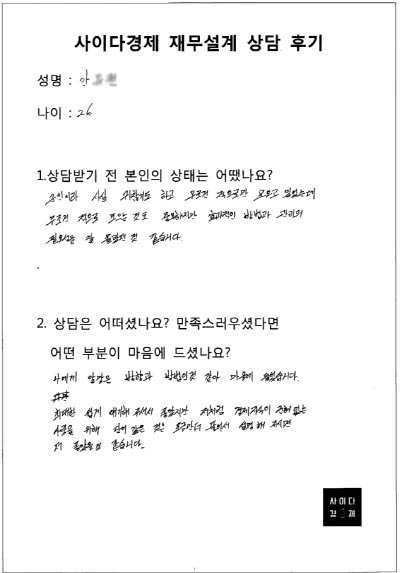 사이다경제 재무설계 상담 후기
성명 : 안
나이 : 26
1.상담받기 전 본인의 상태는 어땠나요?
군인이라 사실 하고 무조건 적으로만 모으고 있었는데
무조건 적으로 모으는 것도 중요하지만 효과적인 방법과 관리의
필요성을 잘 몰랐던 것 같습니다.
2. 상담은 어떠셨나요? 만족스러우셨다면
어떤 부분이 마음에 드셨나요?
나에게 알맞은 방향과 방법인것 같아 마음에 들었습니다.
최대한 쉽게 얘기해 주셔서 좋았지만 저처럼 경제지식이 전혀 없는
사람을 위해 단어 같은 것은 조금만더 풀어서 설명해 주시면
더 좋았을 것 같습니다.
사이다
경제